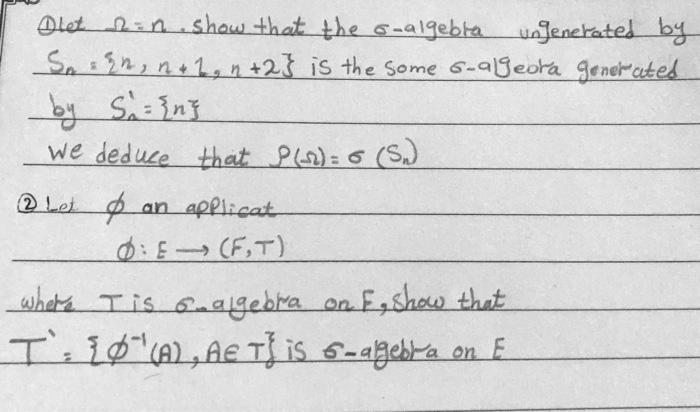 ① Let Ω = n . show that the σ-algebra ungenerated by
Sn = {n, n+1, n+2} is the some σ-algebra generated
by S'n = {n}
we deduce that P(Ω) = σ (Sn)
② Let ϕ an applicat
ϕ : E → (F, T)
where T is σ-algebra on F, show that
T' = {ϕ⁻¹(A), A ∈ T} is σ-algebra on E